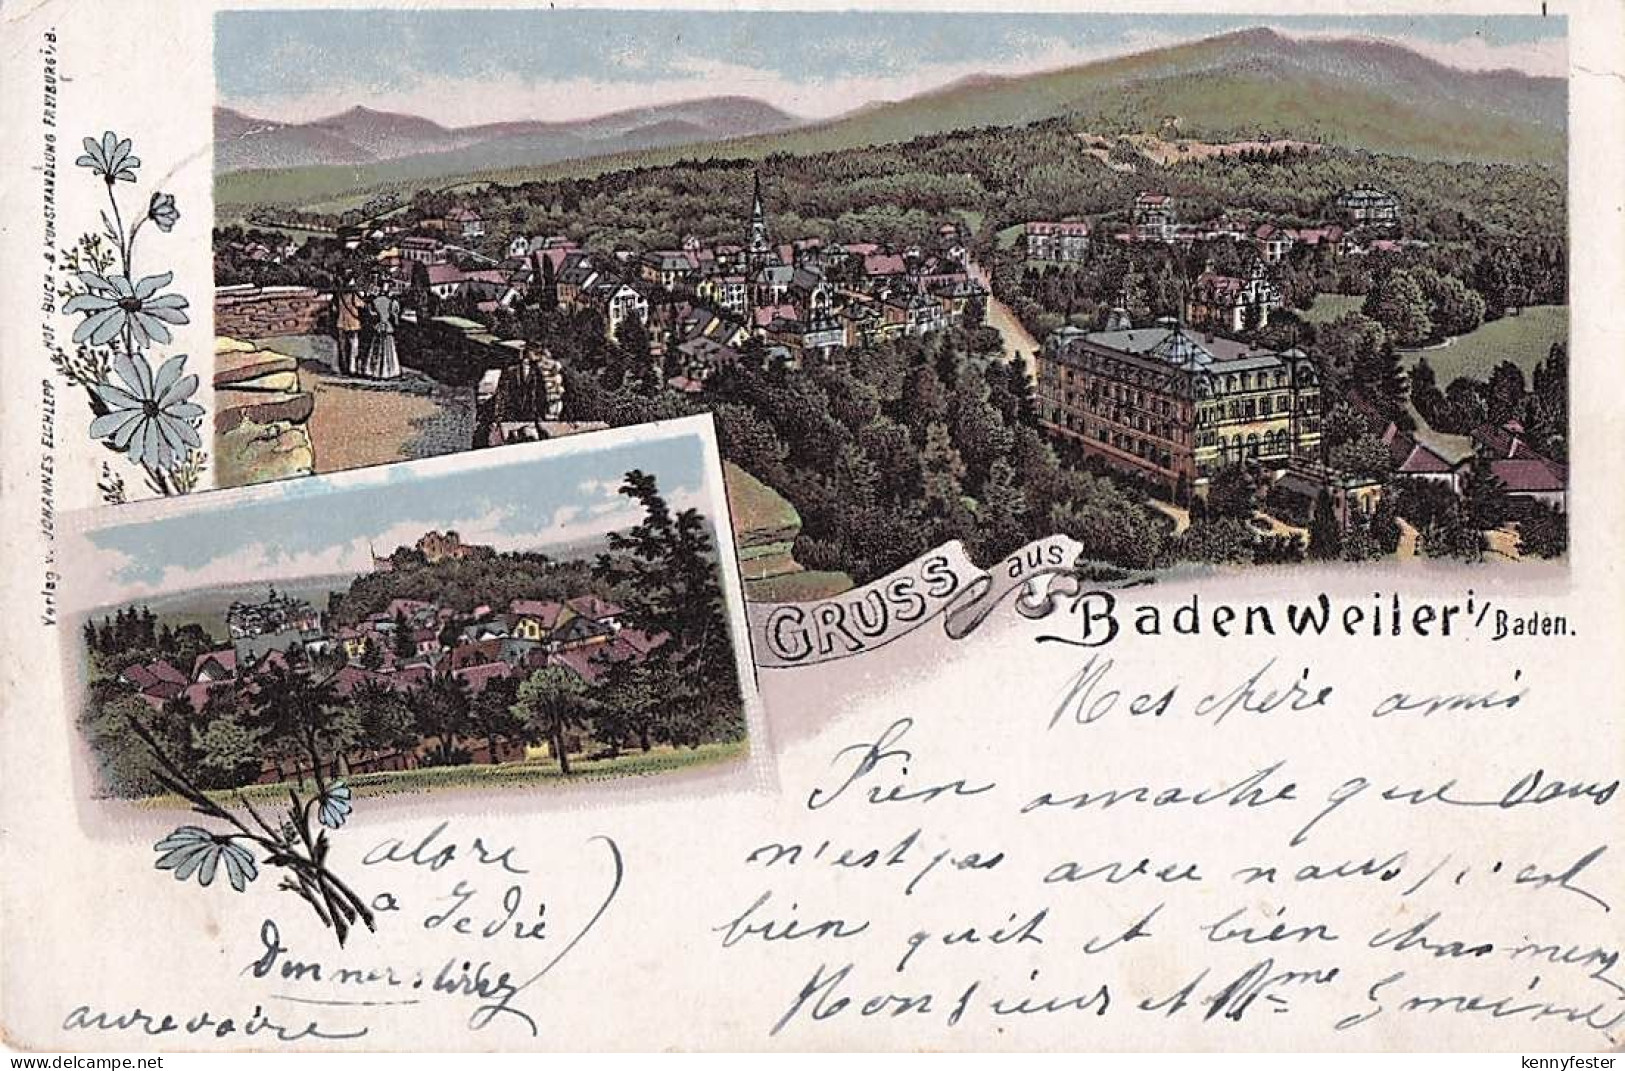 Verlag v. JOHANNES ELCHLEPP HOF BUCH- & KUNSTHANDLUNG FREIBURG i/B.
GRUSS aus
Badenweiler i/Baden.
Mes chère amis
Bien omache que vous
n'est pas avec nous, c'est
bien quit et bien charmens
Monsieur et Mme
alore
a Jedié
Donnerstag
aurevoire
www.delcampe.net
kennyfester